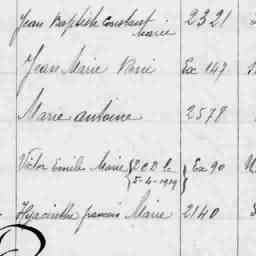 Jean Baptiste Constant Marie 2321
Jean Marie Ex 147
Marie Antoine 2578
Victor Emile Marie {DCD le 5-4-1919} Ex 90
Hyacinthe francois Marie 2140